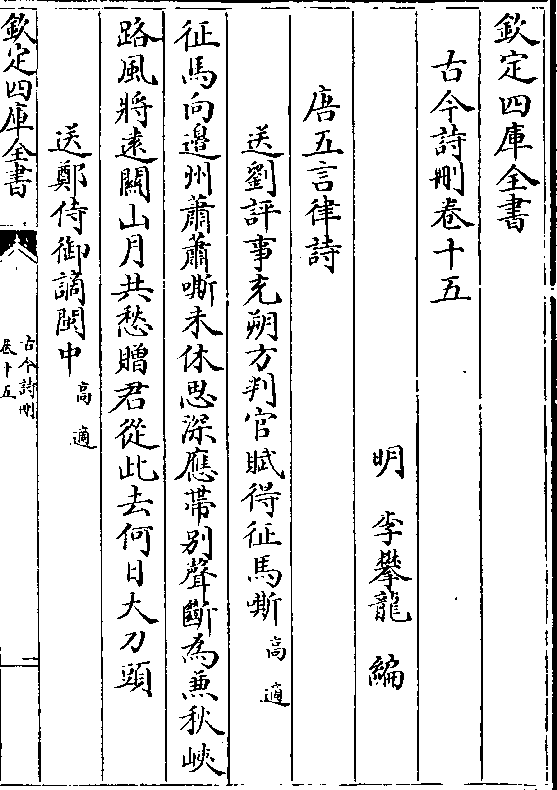 欽定四庫全書
古今詩刪卷十五
明 李攀龍 編
唐五言律詩
送劉評事充朔方判官賦得征馬嘶 高適
征馬向邊州蕭蕭嘶未休思深應帶別聲斷為兼秋峽
路風將遠關山月共愁贈君從此去何日大刀頭
送鄭侍御謫閩中 高適
欽定四庫全書
古今詩刪
卷十五
一